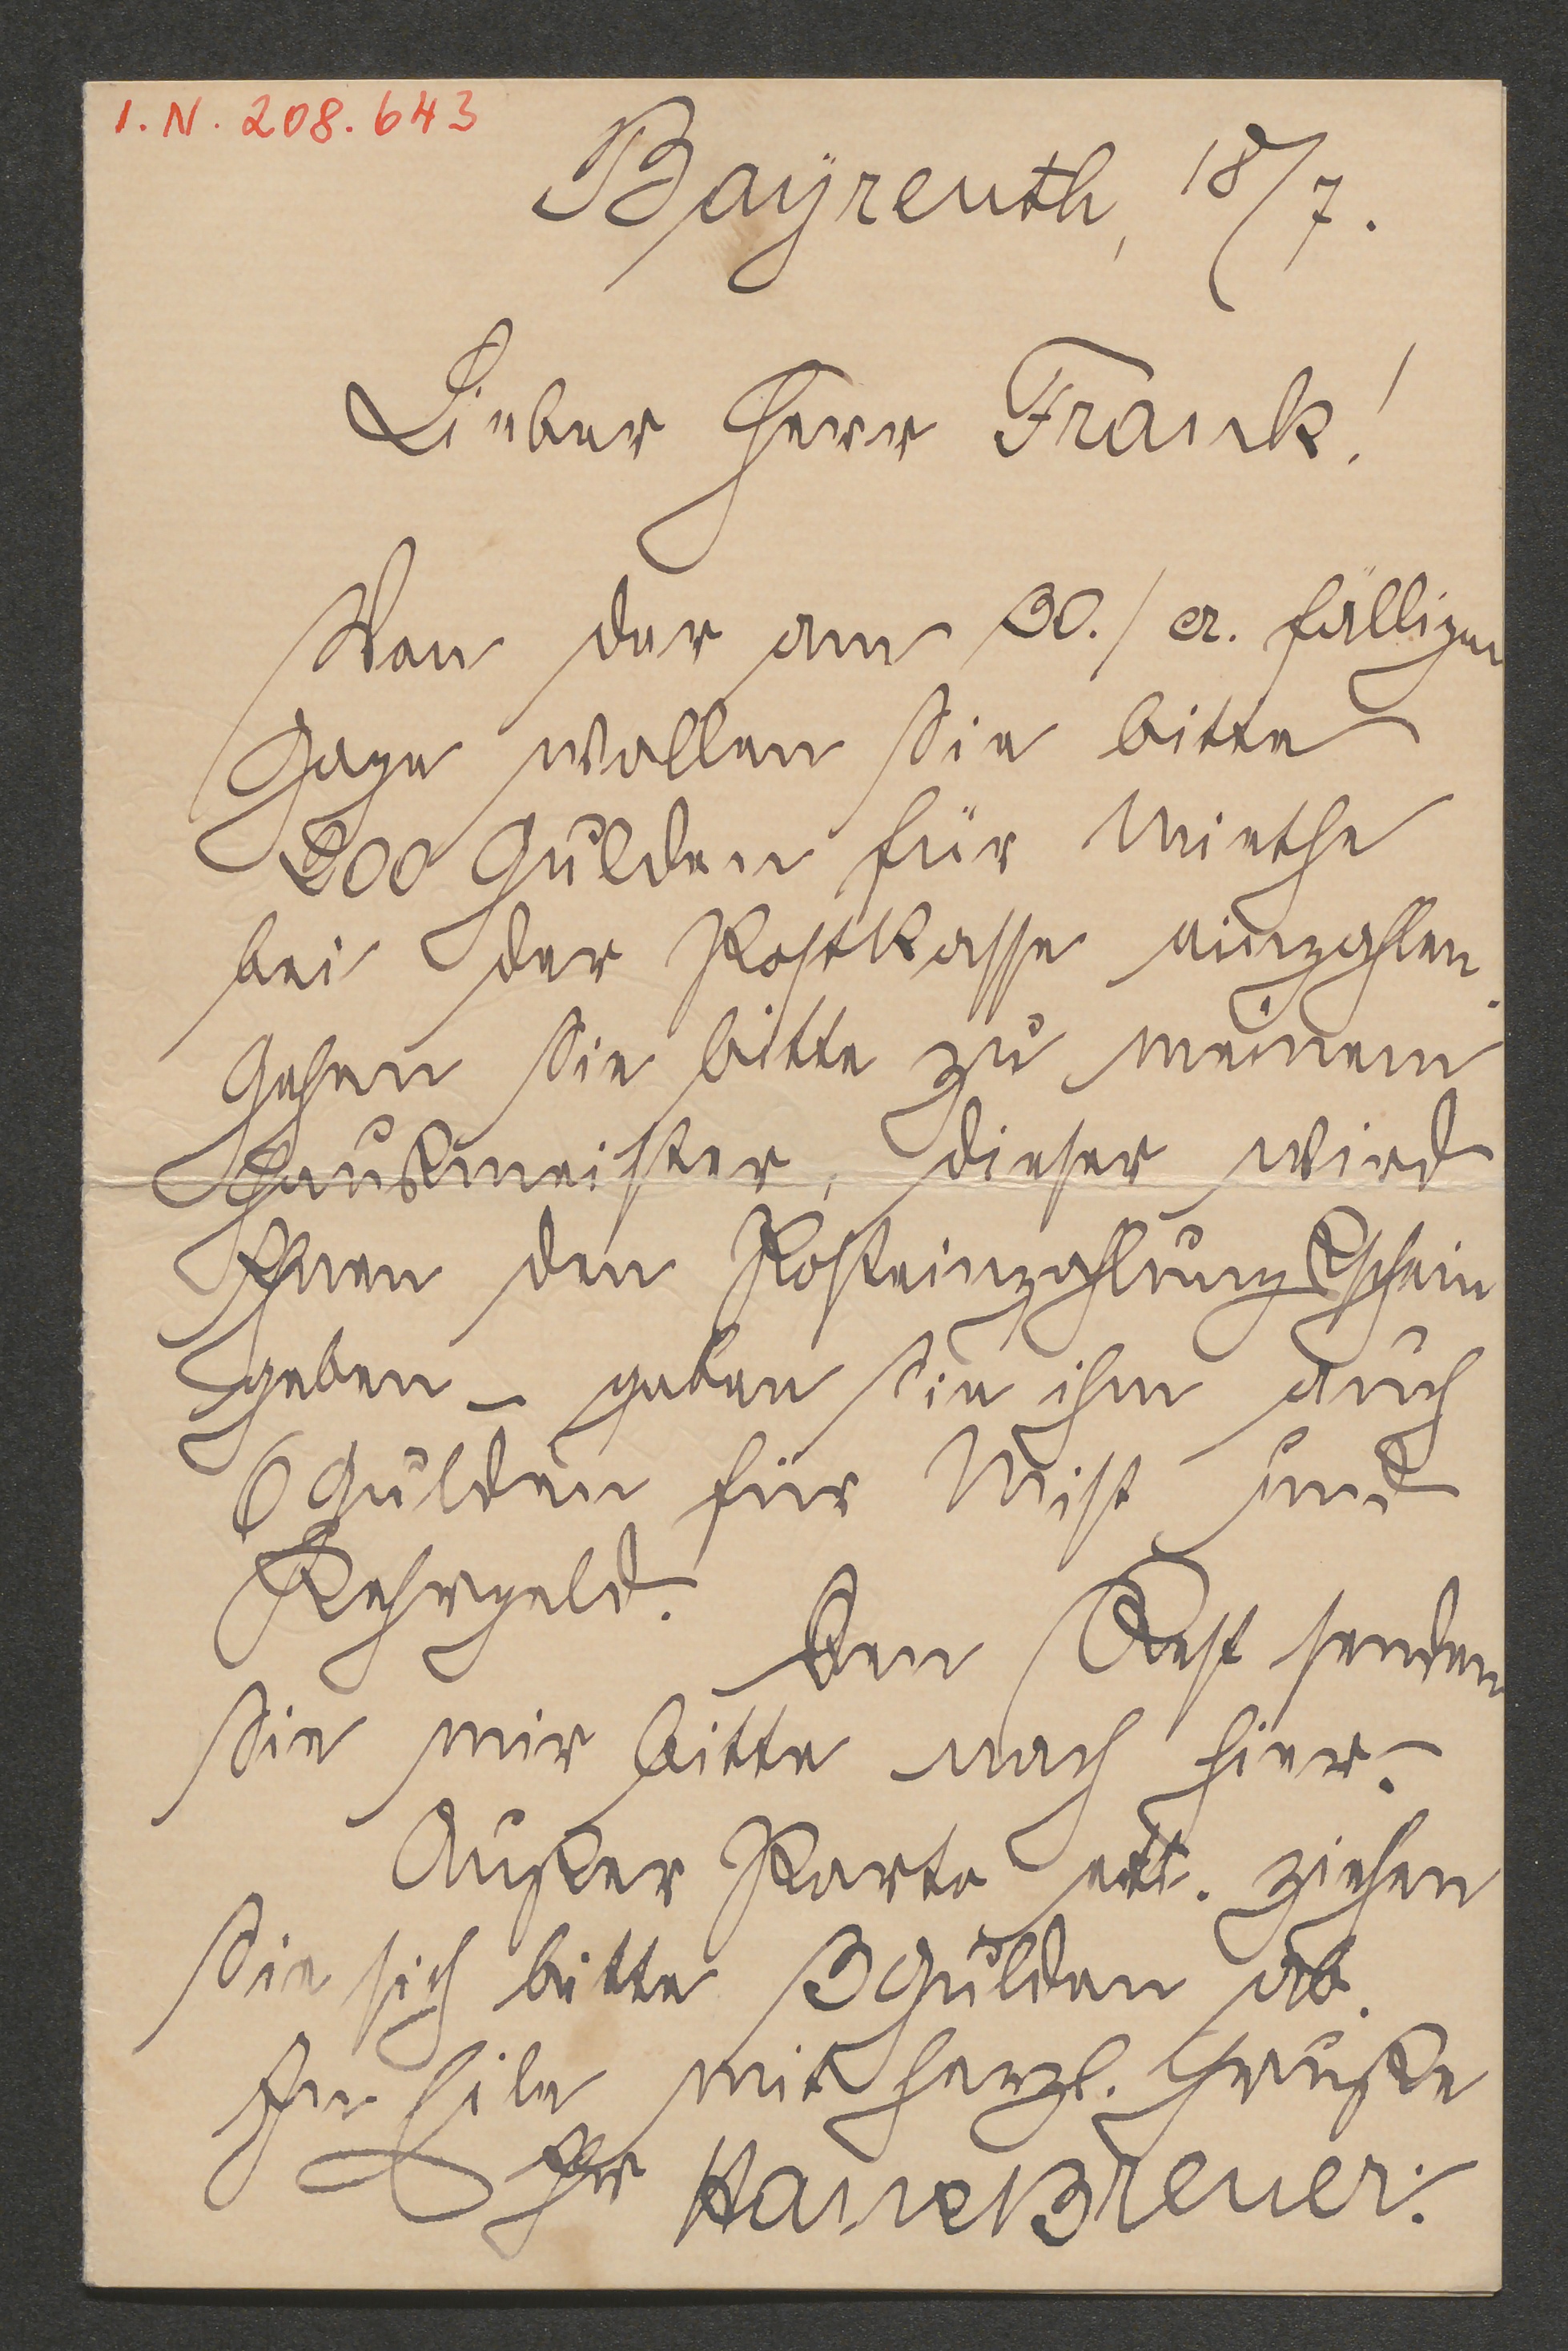 I.N. 208.643
Bayreuth, 18/7.
Lieber Herr Franck!
Von der am 30./ cr. fälligen
Gage wollen Sie bitte
200 Gulden für Miethe
bei der Postkasse einzahlen.
Gehen Sie bitte zu meinem
Hausmeister, dieser wird
Ihnen den Posteinzahlungsschein
geben – geben Sie ihm auch
6 Gulden für Mist und
Kehrgeld. Den Rest senden
Sie mir bitte nach hier.
Außer Porto ect. ziehen
Sie sich bitte 3 Gulden ab.
In Eile mit herzl. Gruße
Ihr Hans Breuer.